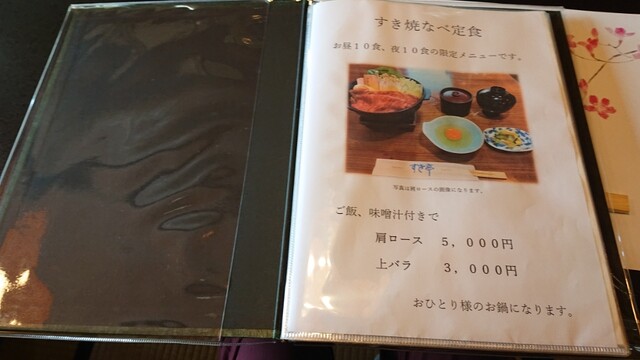 すき焼なべ定食
お昼１０食、夜１０食の限定メニューです。
すき亭
写真は肩ロースの画像になります。
ご飯、味噌汁付きで
肩ロース　５，０００円
上バラ　３，０００円
おひとり様のお鍋になります。